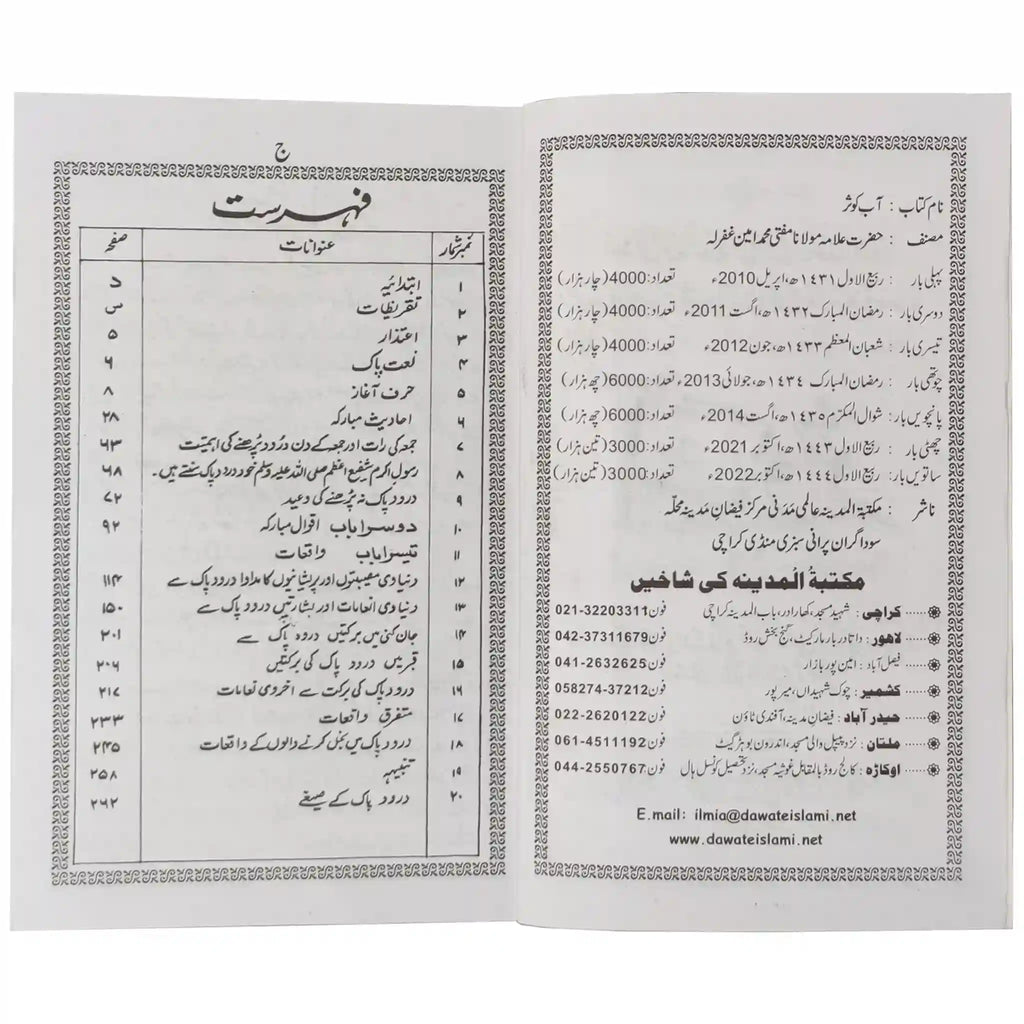 نام کتاب : آب کوثر
مصنف : حضرت علامہ مولانا مفتی محمد امین غفرلہ
پہلی بار : ربیع الاول ١٤٣١ھ، اپریل 2010ء تعداد:4000(چار ہزار)
دوسری بار : رمضان المبارک ١٤٣٢ھ، اگست 2011ء تعداد:4000(چار ہزار)
تیسری بار : شعبان المعظم ١٤٣٣ھ، جون 2012ء تعداد:4000(چار ہزار)
چوتھی بار : رمضان المبارک ١٤٣٤ھ، جولائی 2013ء تعداد:6000(چھ ہزار)
پانچویں بار: شوال المکرم ١٤٣٥ھ، اگست 2014ء تعداد:6000(چھ ہزار)
چھٹی بار : ربیع الاول ١٤٤٣ھ، اکتوبر 2021ء تعداد:3000(تین ہزار)
ساتویں بار: ربیع الاول ١٤٤٤ھ، اکتوبر 2022ء تعداد:3000(تین ہزار)
ناشر : مکتبۃ المدینہ عالمی مدنی مرکز فیضانِ مدینہ محلہ
سوداگران پرانی سبزی منڈی کراچی
مکتبۃُ المدینہ کی شاخیں
کراچی : شہید مسجد، کھارادر، باب المدینہ کراچی فون: 021-32203311
لاھور : داتا دربار مارکیٹ، گنج بخش روڈ فون: 042-37311679
فیصل آباد : امین پور بازار فون: 041-2632625
کشمیر : چوک شہیداں، میرپور فون: 058274-37212
حیدر آباد : فیضانِ مدینہ، آفندی ٹاؤن فون: 022-2620122
ملتان : نزد پیپل والی مسجد، اندرون بوہڑ گیٹ فون: 061-4511192
اوکاڑہ : کالج روڈ بالمقابل غوثیہ مسجد، نزد تحصیل کونسل ہال فون: 044-2550767
E.mail: ilmia@dawateislami.net
www.dawateislami.net
ج
فہرست
نمبر شمار عنوانات صفحہ
۱ ابتدائیہ د
۲ تقریظات س
۳ اعتذار ۵
۴ نعت پاک ۶
۵ حرف آغاز ۸
۶ احادیث مبارکہ ۲۸
۷ جمعہ کی رات اور جمعہ کے دن درود پڑھنے کی اہمیت ۶۳
۸ رسول اکرم شفیع اعظم صلی اللہ علیہ وسلم خود درود پاک سنتے ہیں۔ ۶۸
۹ درود پاک نہ پڑھنے کی وعید ۷۲
۱۰ دوسرا باب اقوال مبارکہ ۹۲
۱۱ تیسرا باب واقعات
۱۲ دنیاوی مصیبتوں اور پریشانیوں کا مداوا درود پاک سے ۱۱۴
۱۳ دنیاوی انعامات اور بشارتیں درود پاک سے ۱۵۰
۱۴ جان کنی میں برکتیں درود پاک سے ۲۰۱
۱۵ قبر میں درود پاک کی برکتیں ۲۰۶
۱۶ درود پاک کی برکت سے اخروی نعامات ۲۱۷
۱۷ متفرق واقعات ۲۳۳
۱۸ درود پاک میں بخل کرنے والوں کے واقعات ۲۴۵
۱۹ تنبیہہ ۲۵۸
۲۰ درود پاک کے صیغے ۲۶۲